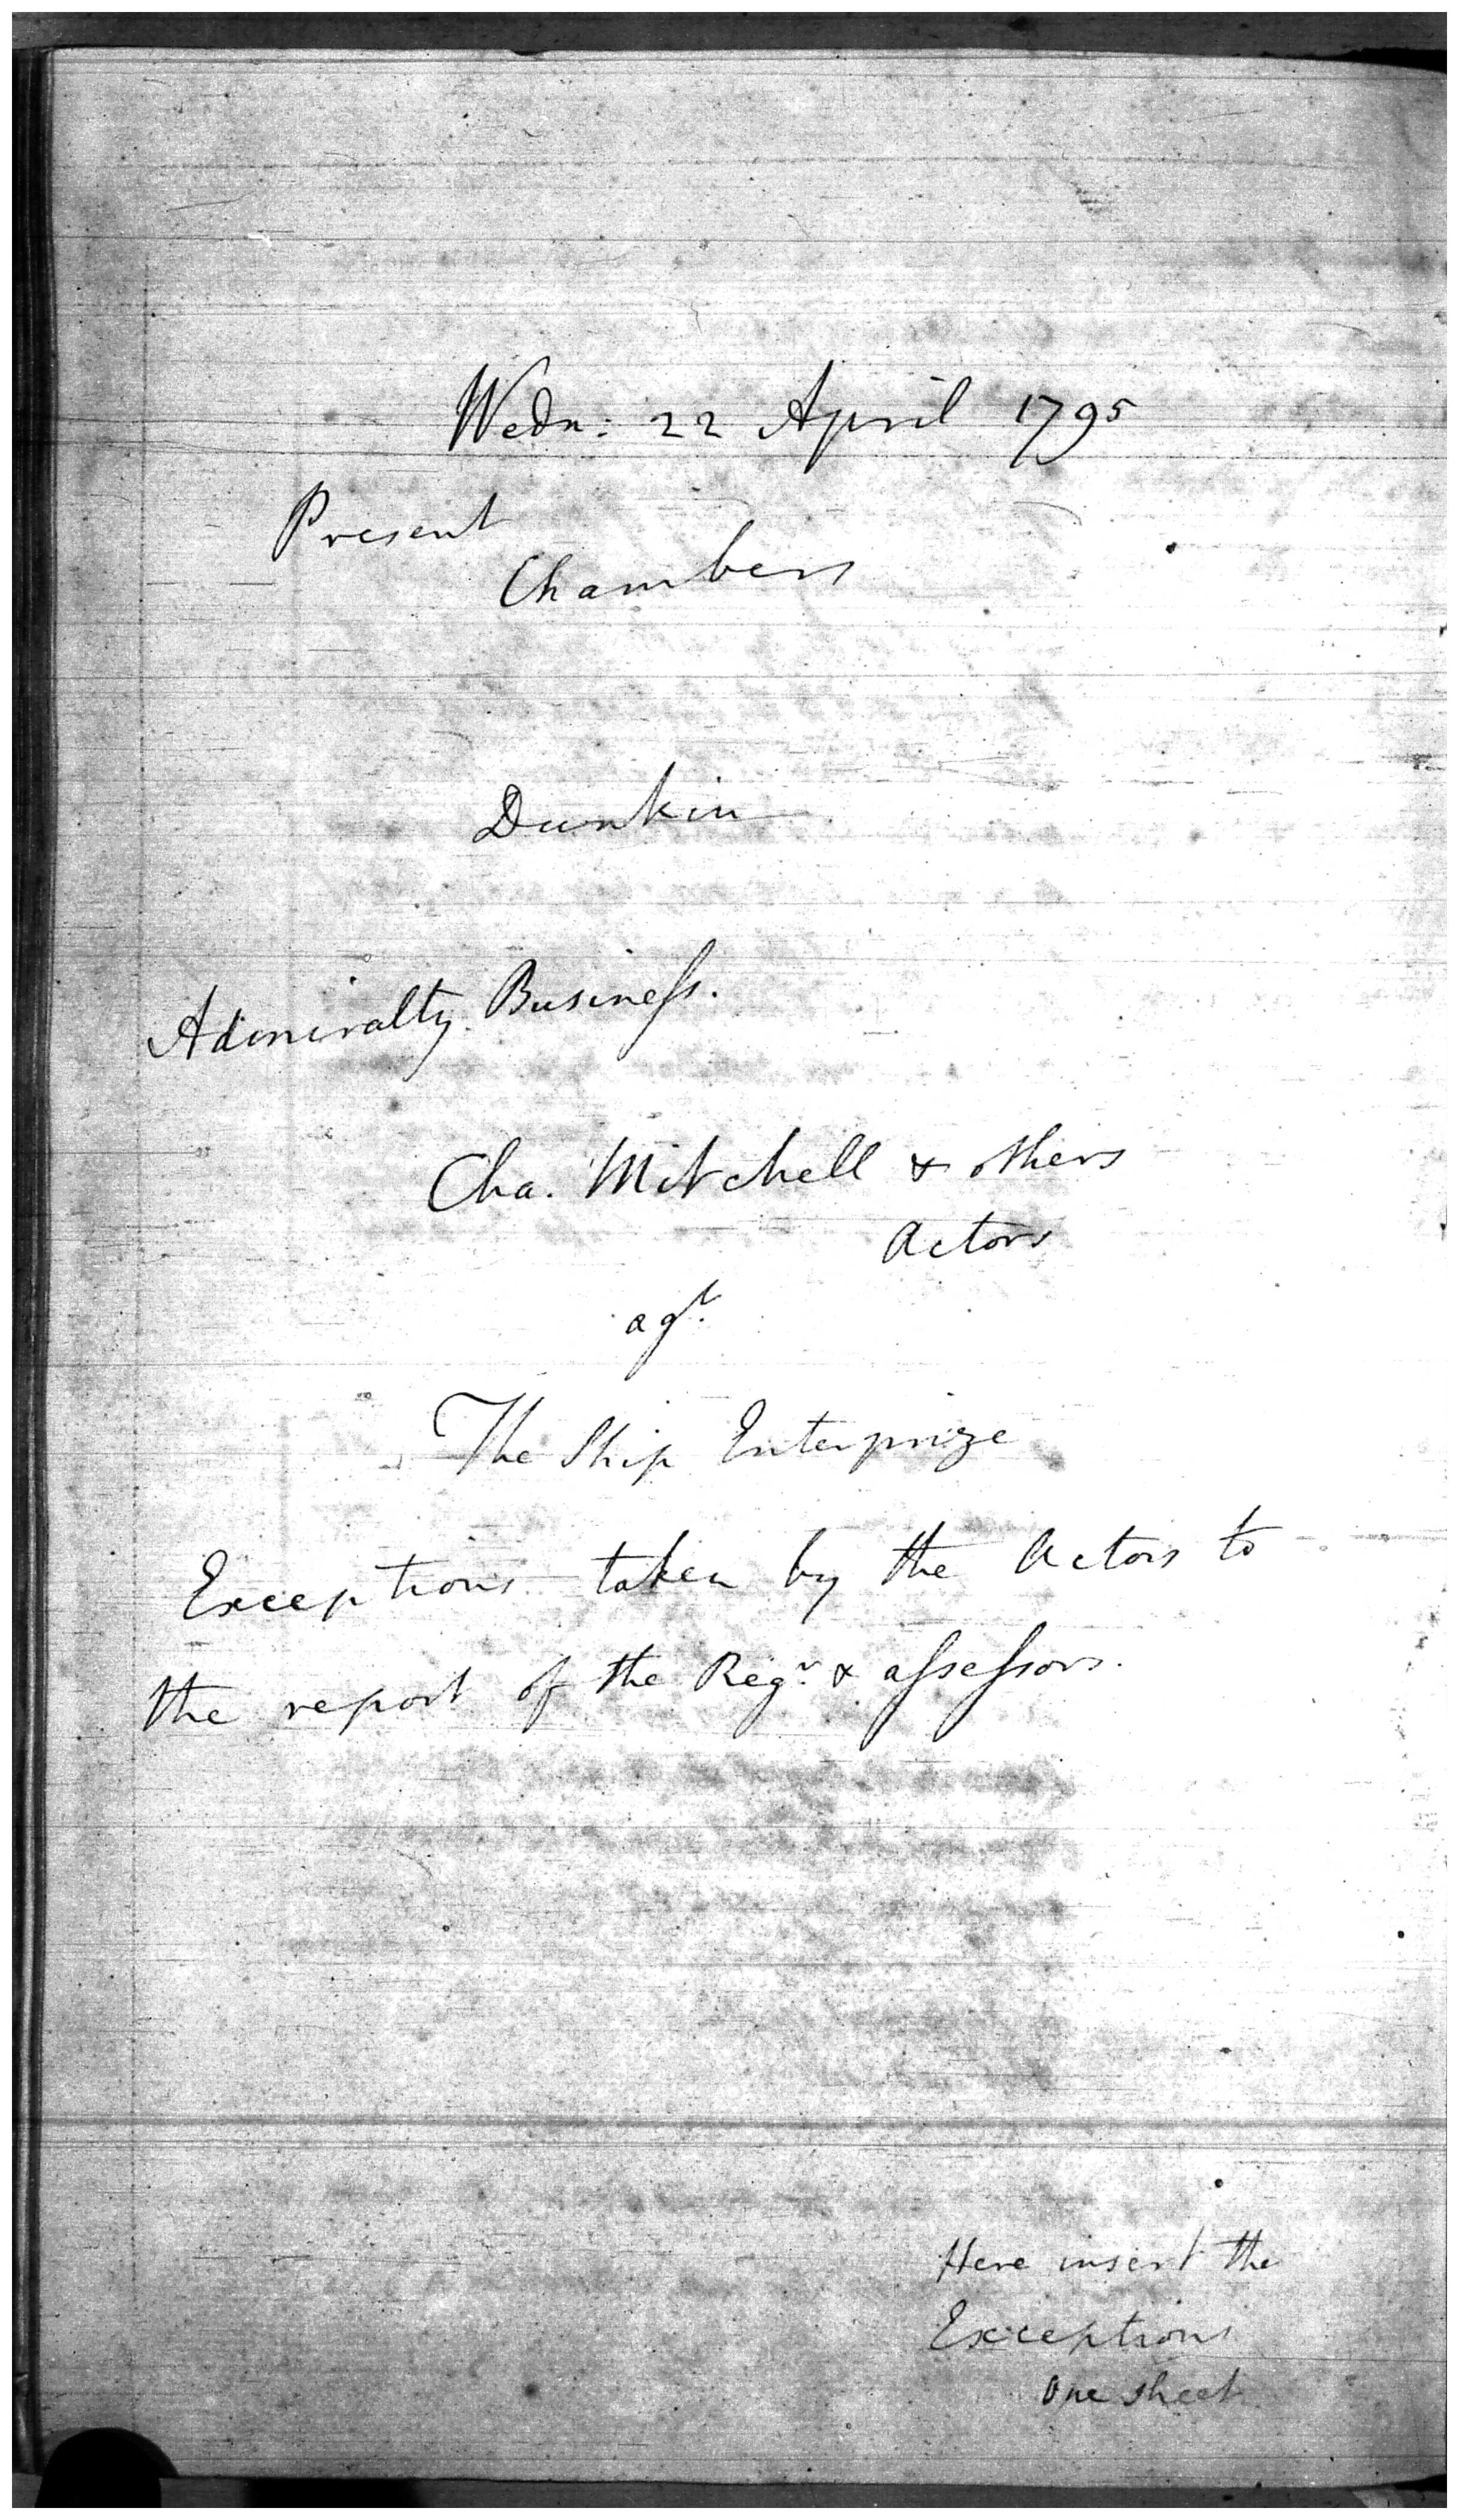 Wedn: 22 April 1795
Present
Chambers
Dunkin
Admiralty Business.
Cha. Mitchell & others
Actors
agt.
The Ship Enterprize
Exceptions taken by the Actors to
the report of the Regr. & assessors.
Here insert the
Exceptions
One sheet